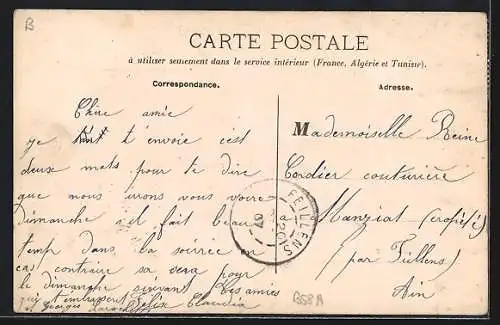 B
CARTE POSTALE
à utiliser seulement dans le service intérieur (France, Algérie et Tunisie).
Correspondance.
Adresse.
Chère amie
je t'envoie c'est
deux mots pour te dire
que nous irons vous voire
dimanche si il fait beau
temp dans la soirée en
cas contraire sa sera pour
le dimanche suivant Tes amies
qui t'embrassent Félix Claudia
et Georges
Mademoiselle Reine
Cordier couturière
à Manziat
par Feillens
Ain
FEILLENS
B58A